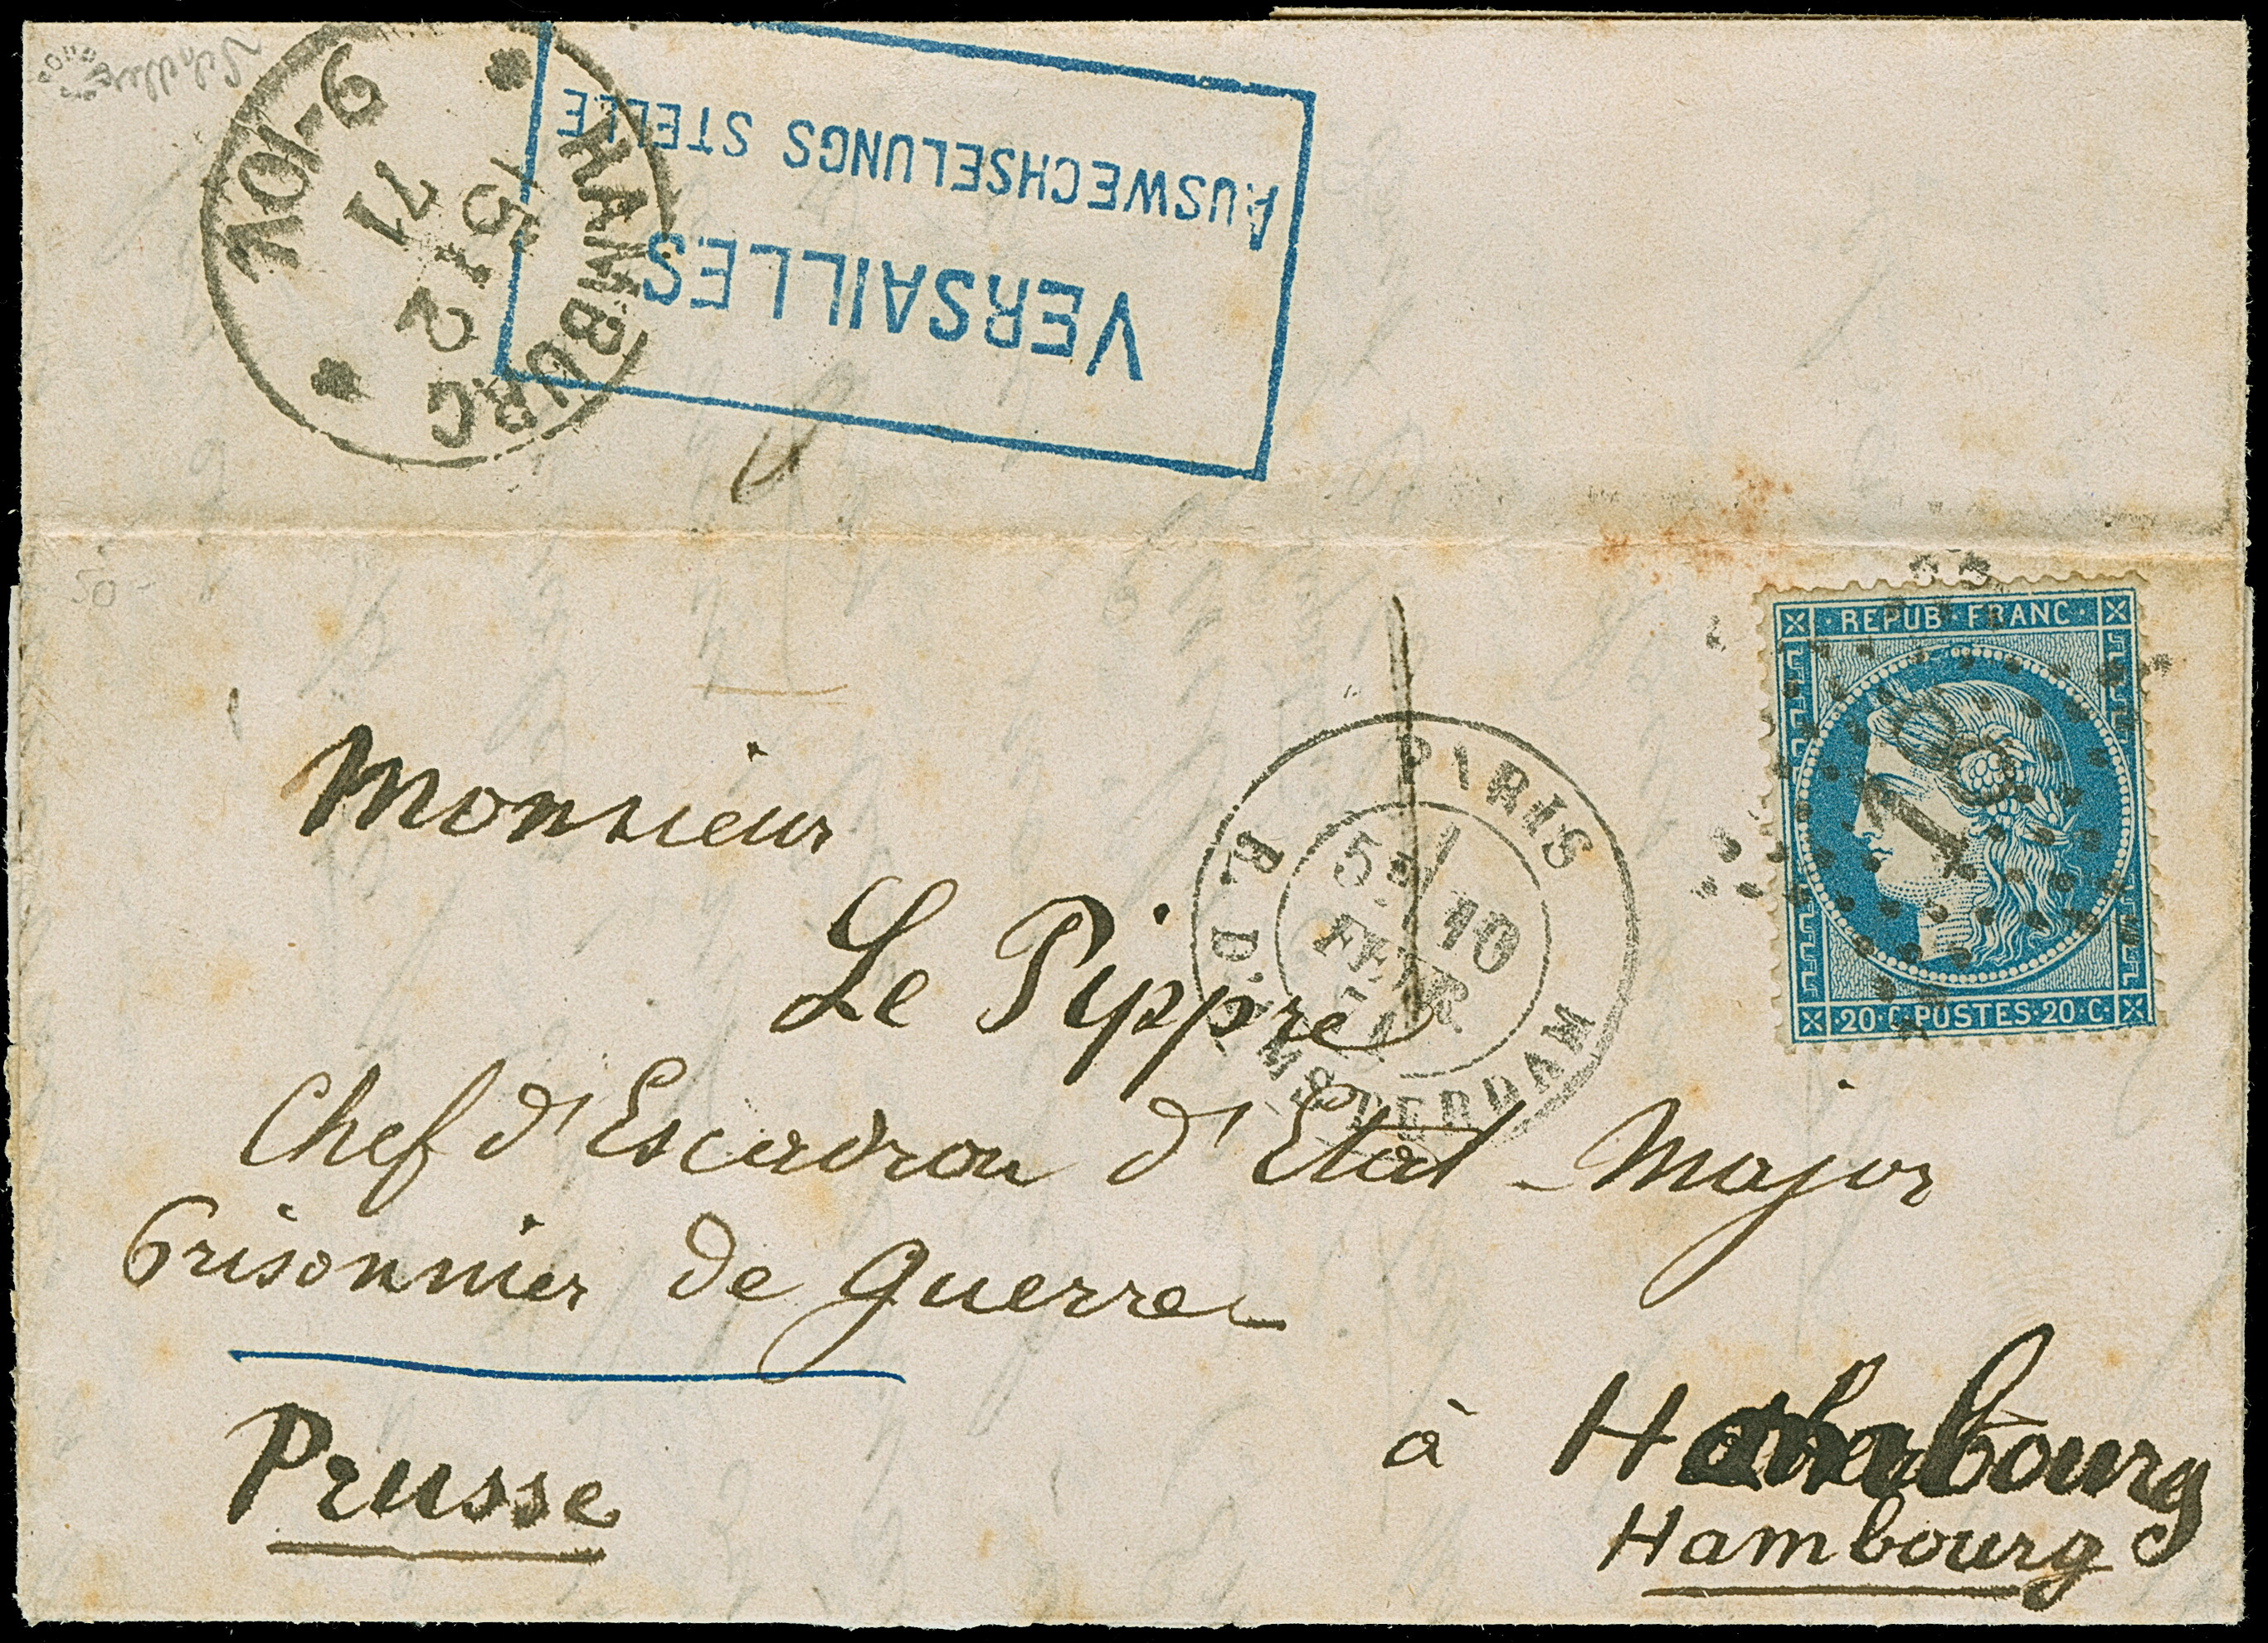 HAMBURG
15 2
71
9-10V.
VERSAILLES
AUSWECHSELUNGS STELLE
50-
REPUB·FRANC·
18
·20·C·POSTES·20·C·
PARIS
R. D'AMSTERDAM
5E/
10
FEVR
71
Monsieur
Le Pippre
Chef d'Escadron d'Etat-Major
Prisonnier de guerre
Prusse
à Hambourg
Hambourg